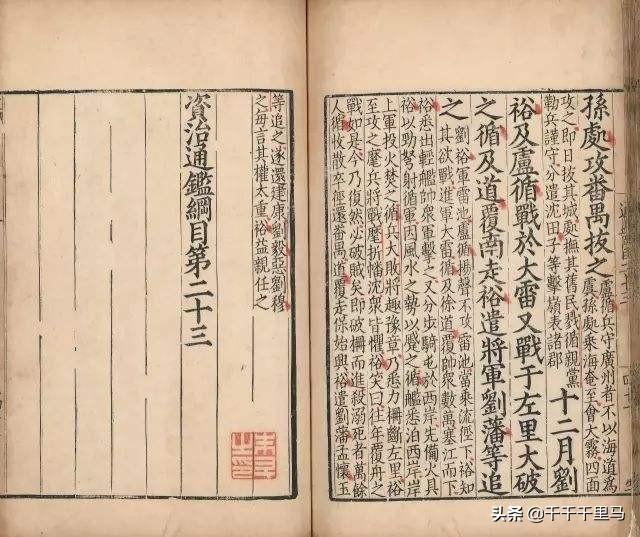 孫處攻番禺拔之
盧循兵守廣州者不以海道為
虞孫處乘海奄至會大霧四面
攻之即日拔其城處撫其舊民戮循親黨
勒兵謹守分遣沈田子等擊嶺表諸郡
十二月劉
裕及盧循戰於大雷又戰于左里大破
之循及道覆南走裕遣將軍劉藩等追
之
劉裕軍雷池盧循揚聲不攻雷池當乘流徑下裕知
其欲戰進軍大雷循及徐道覆帥衆數萬塞江而下
裕悉出輕艦帥衆軍擊之又分步騎屯於西岸先備火具
裕以勁弩射循軍因風水之勢以蹙之循艦悉泊西岸岸
上軍投火焚之循兵大敗將趣豫章乃悉力柵斷左里裕
至攻之麾兵將戰麾折幡沈衆皆懼裕笑曰往年覆舟之
戰如是今乃復然必破賊矣即破柵而進殺溺死者萬餘
人循收散卒徑還番禺道覆走保始興裕遣劉藩孟懷玉
等追之遂還建康劉毅惡劉穆
之毎言其權太重裕益親任之
資治通鑑綱目第二十三
头条 @千千千里马